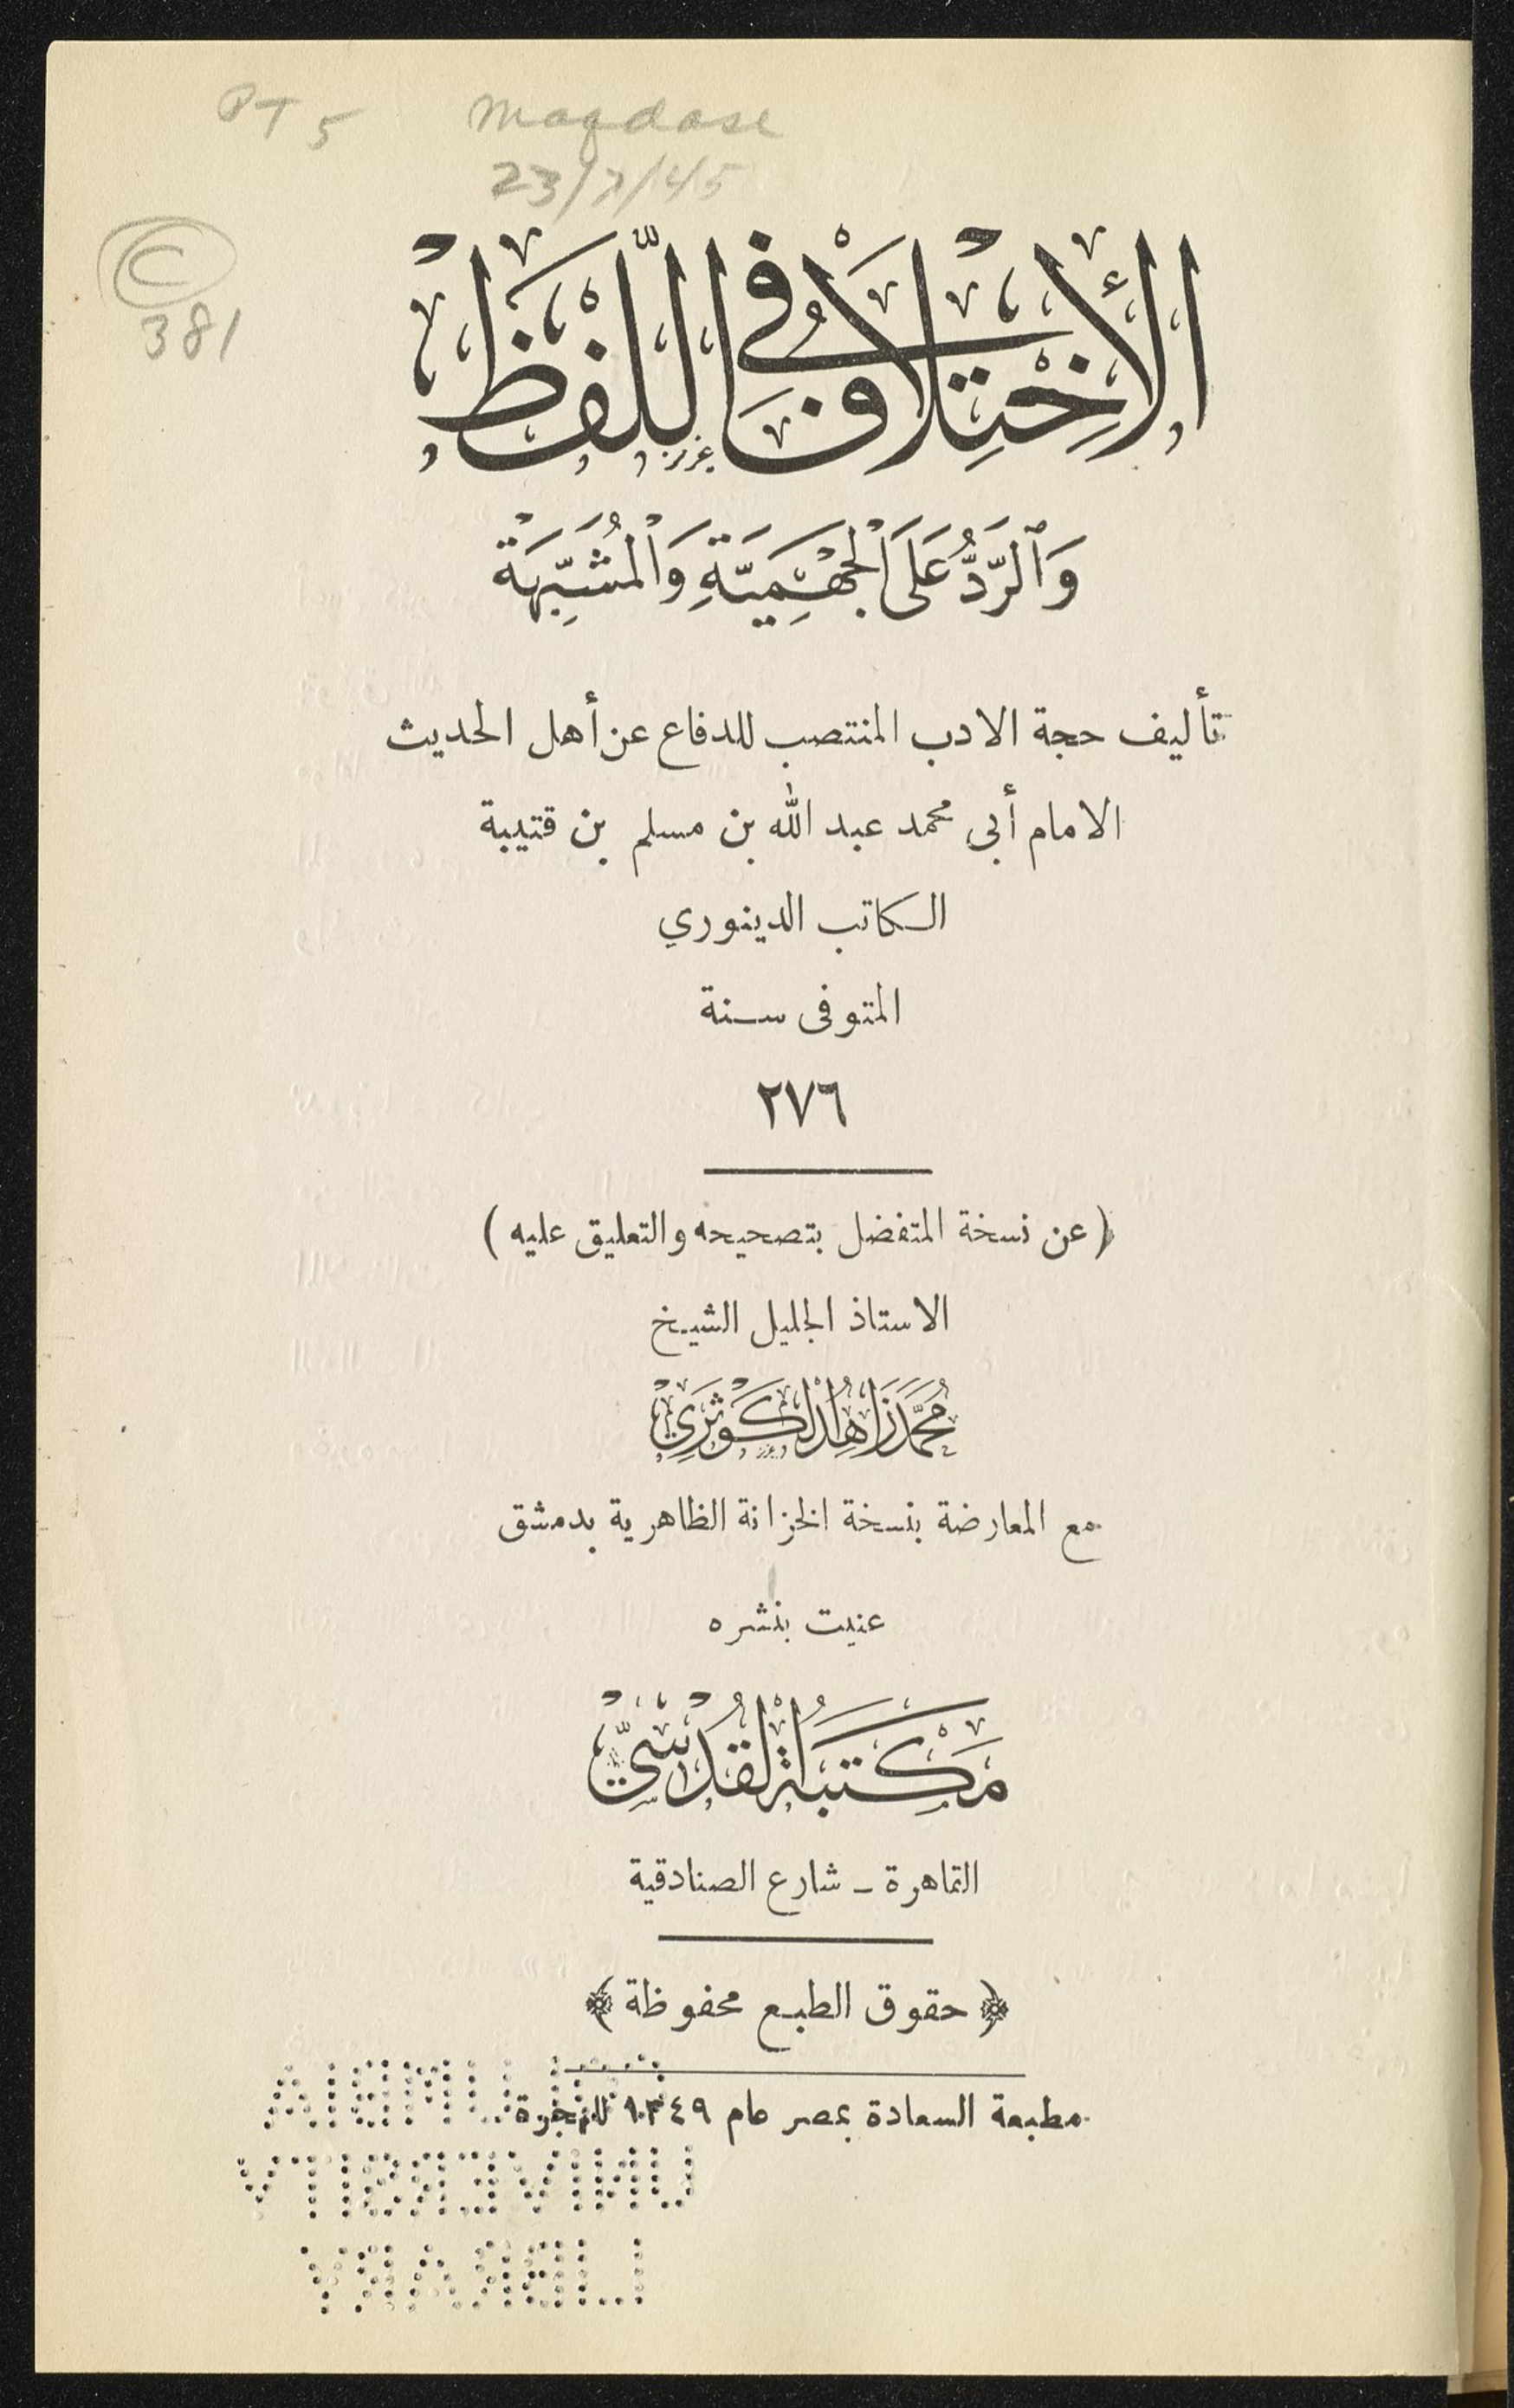 PT 5 Maqdase
23/7/45
C
381
الْاِخْتِلَافُ فِي اللَّفْظِ
وَالرَّدُّ عَلَى الْجَهْمِيَّةِ وَالْمُشَبِّهَةْ
تأليف حجة الادب المنتصب للدفاع عن أهل الحديث
الامام أبي محمد عبد الله بن مسلم بن قتيبة
الكاتب الدينوري
المتوفى سنة
٢٧٦
( عن نسخة المتفضل بتصحيحه والتعليق عليه )
الاستاذ الجليل الشيخ
مُحَمَّد زَاهِد الْكَوْثَرِيّ
مع المعارضة بنسخة الخزانة الظاهرية بدمشق
عنيت بنشره
مَكْتَبَةُ الْقُدْسِيّ
القاهرة ـ شارع الصنادقية
﴿ حقوق الطبع محفوظة ﴾
مطبعة السعادة بمصر عام ١٣٤٩ للهجرة
COLUMBIA
UNIVERSITY
LIBRARY